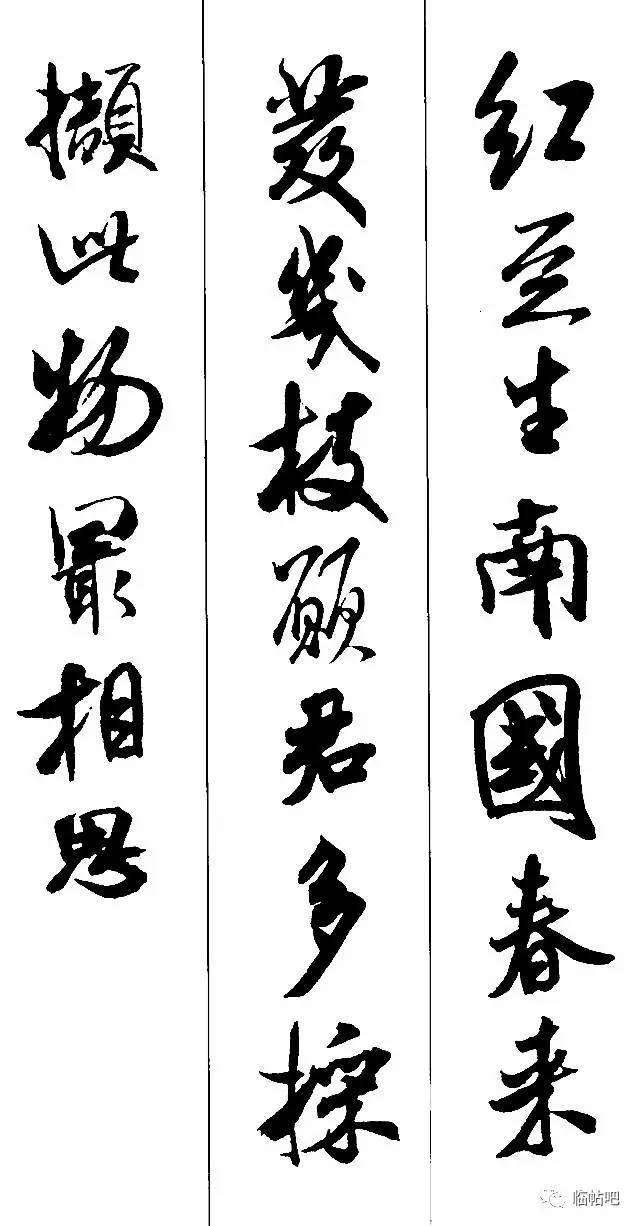 红豆生南國春来
發幾枝願君多採
擷此物最相思
临帖吧